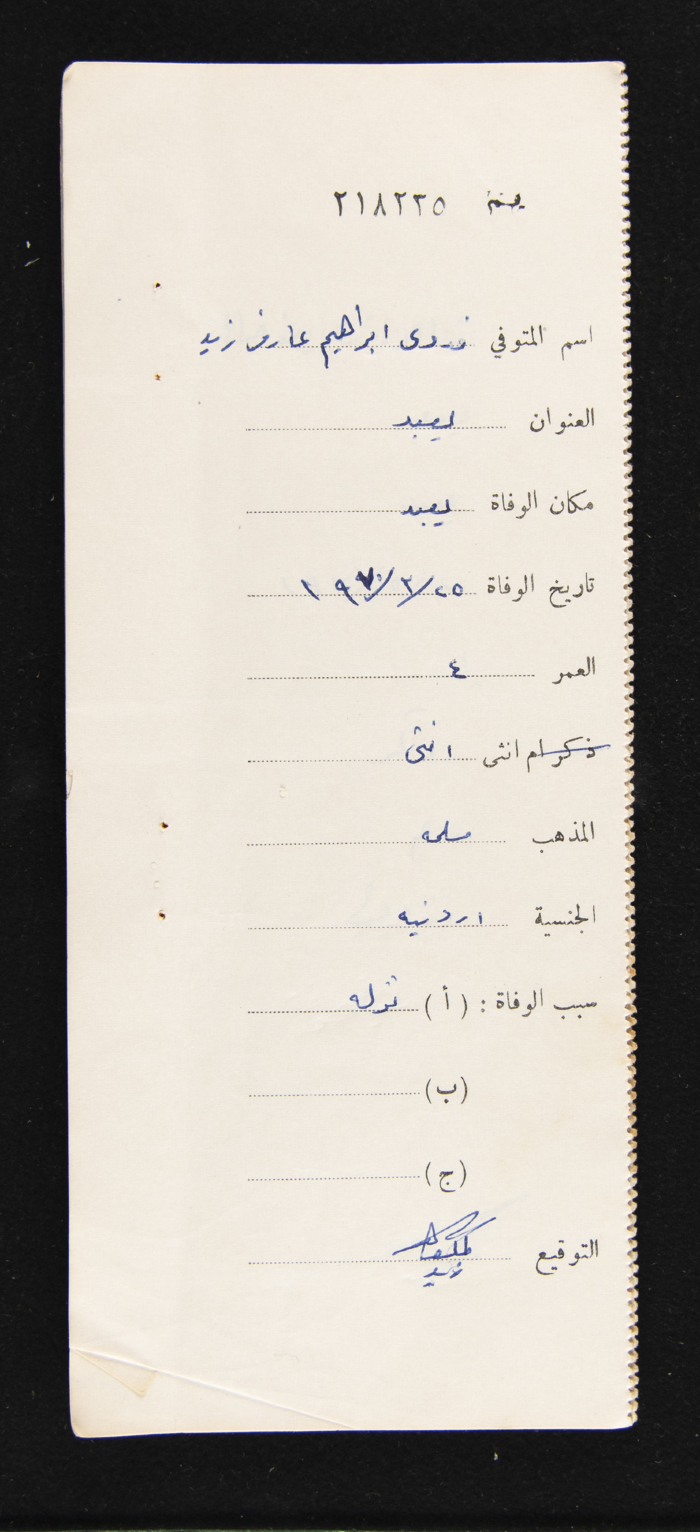 نمرة ٢١٨٢٢٥
اسم المتوفي فدوى ابراهيم عارف زيد
العنوان يعبد
مكان الوفاة يعبد
تاريخ الوفاة ٢٥/٣/١٩٧٠
العمر ٤
ذكر ام انثى انثى
المذهب مسلمه
الجنسية اردنيه
سبب الوفاة : ( أ ) نزله
(ب)
(ج)
التوقيع